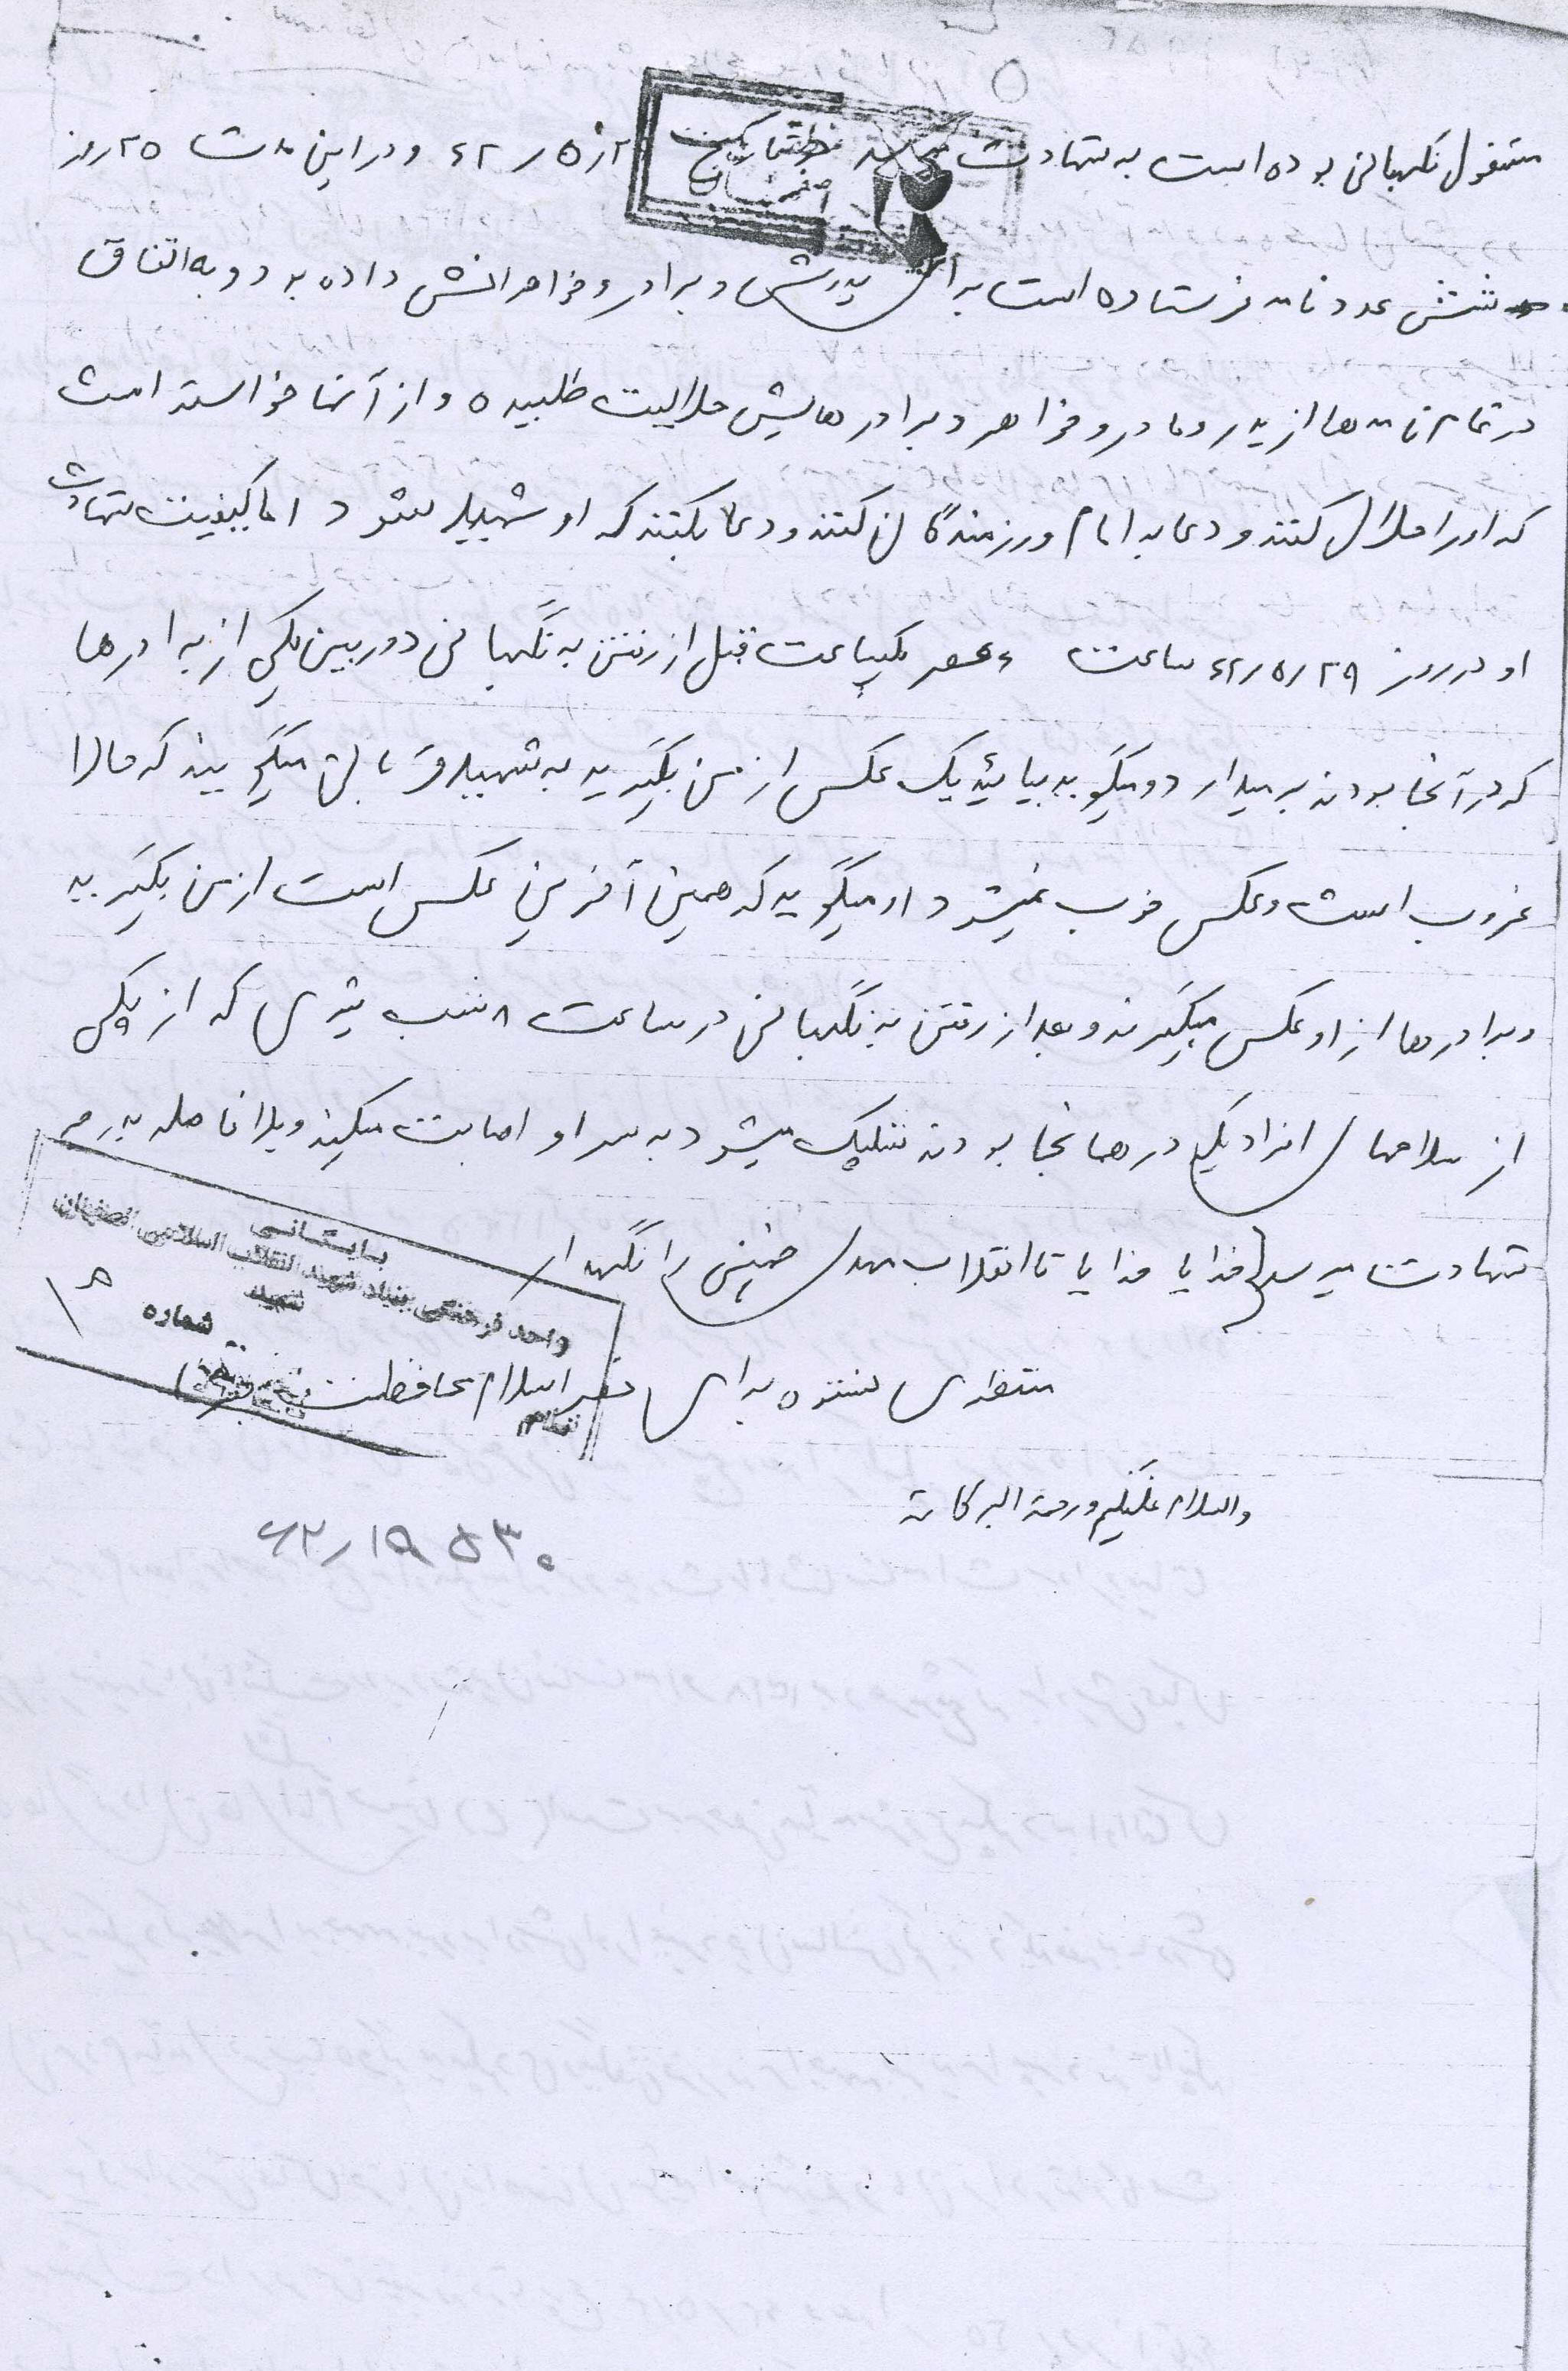 مشغول نگهبانی بوده است به شهادت میرسد ۶۲ و در این مدت ۲۵ روز
شش عدد نامه فرستاده است برای پدرش و برادر و خواهرانش داده بود و به اتفاق
در تمام نامه ها از پدر و مادر و خواهر و برادرهایش حلالیت طلبیده و از آنها خواسته است
که او را حلال کنند و دعا به امام و رزمندگان کنند و دعا بکنند که او شهید شود اما کیفیت شهادت
او در روز ۶۲/۵/۲۹ ساعت ۶ عصر یکساعت قبل از رفتن به نگهبانی دوربین یکی از برادرها
که در آنجا بودند بر میدارد و میگوید بیائید یک عکس از من بگیرید به شهید میگویند که حالا
غروب است و عکس خوب نمیشود او میگوید که همین آخرین عکس است از من بگیرید
و برادرها از او عکس میگیرند و بعد از رفتن به نگهبانی در ساعت ۸ شب تیری که از یکی
از سلاحهای افراد یکه در همانجا بودند شلیک میشود به سر او اصابت میکند و بلافاصله به درجه
شهادت میرسد خدایا خدایا تا انقلاب مهدی خمینی را نگهدار
منتظری برای اسلام محافظت
والسلام علیکم و رحمة البرکاته
بایگانی
واحد فرهنگی بنیاد شهید انقلاب اسلامی اصفهان
شهید
شماره